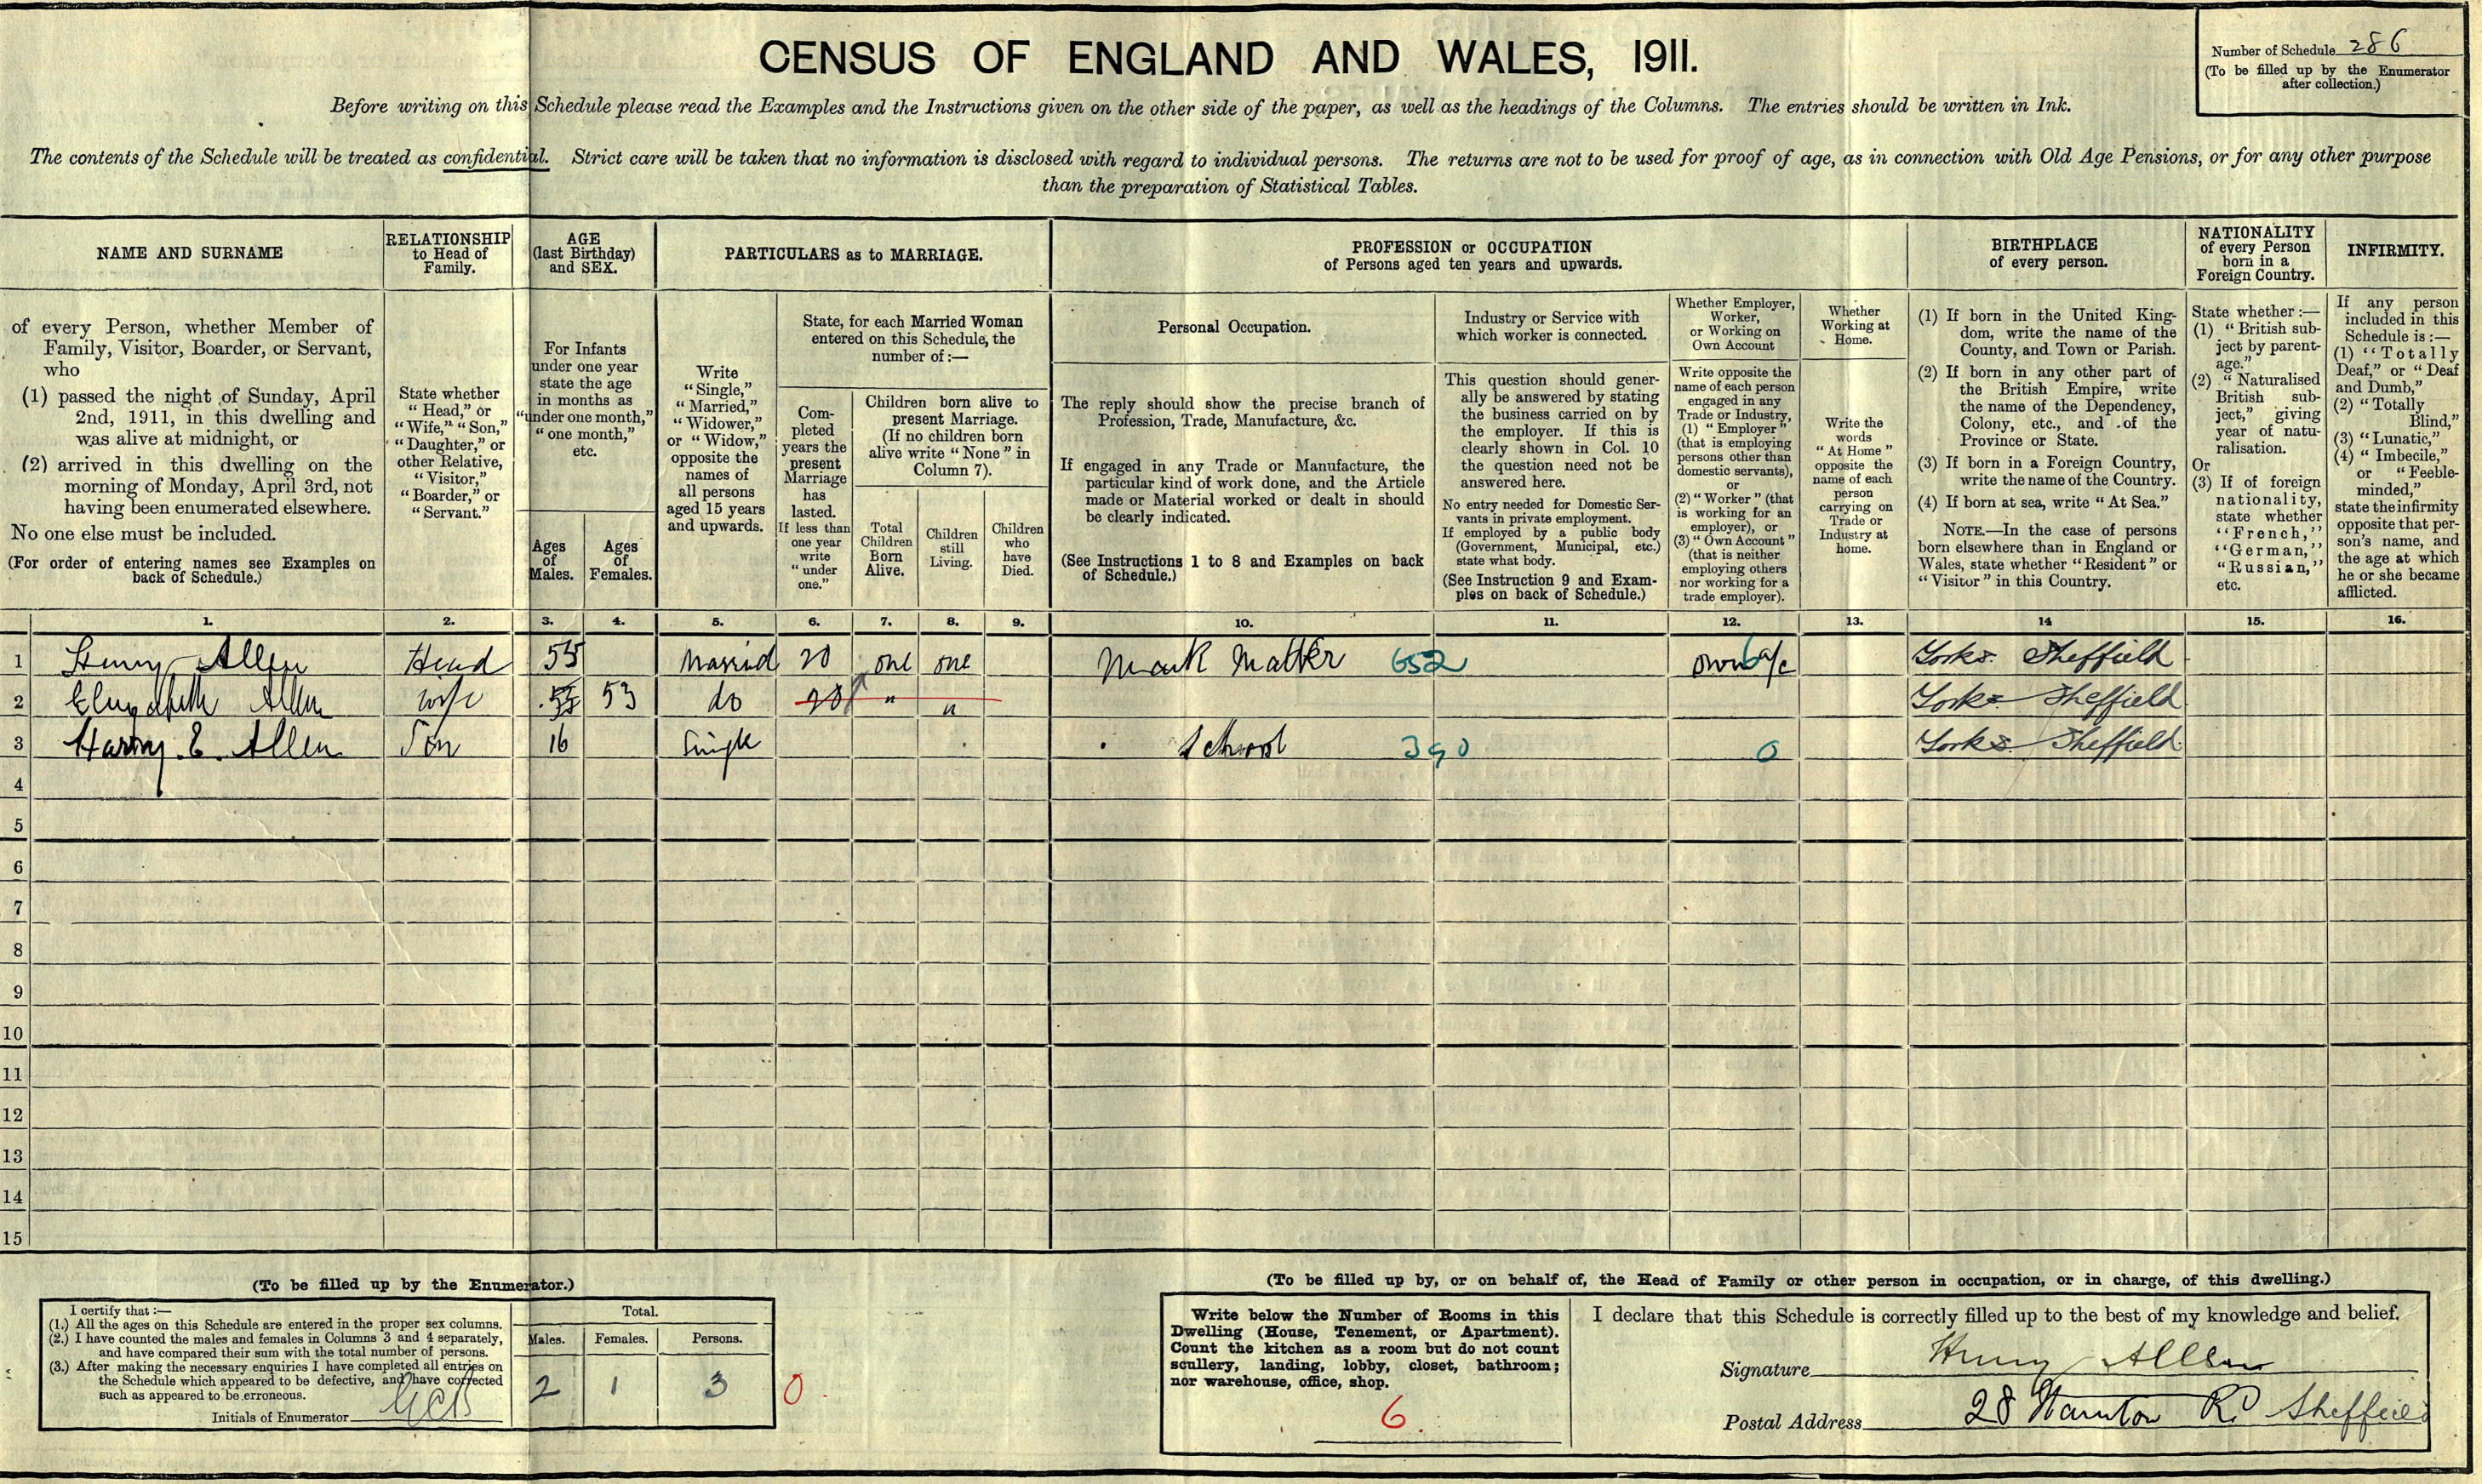 CENSUS OF ENGLAND AND WALES, 1911.
Number of Schedule 286
(To be filled up by the Enumerator
after collection.)
Before writing on this Schedule please read the Examples and the Instructions given on the other side of the paper, as well as the headings of the Columns. The entries should be written in Ink.
The contents of the Schedule will be treated as confidential. Strict care will be taken that no information is disclosed with regard to individual persons. The returns are not to be used for proof of age, as in connection with Old Age Pensions, or for any other purpose
than the preparation of Statistical Tables.
NAME AND SURNAME
of every Person, whether Member of
Family, Visitor, Boarder, or Servant,
who
(1) passed the night of Sunday, April
2nd, 1911, in this dwelling and
was alive at midnight, or
(2) arrived in this dwelling on the
morning of Monday, April 3rd, not
having been enumerated elsewhere.
No one else must be included.
(For order of entering names see Examples on
back of Schedule.)
RELATIONSHIP
to Head of
Family.
State whether
"Head," or
"Wife," "Son,"
"Daughter," or
other Relative,
"Visitor,"
"Boarder," or
"Servant."
AGE
(last Birthday)
and SEX.
For Infants
under one year
state the age
in months as
"under one month,"
"one month,"
etc.
Ages
of
Males.
Ages
of
Females.
PARTICULARS as to MARRIAGE.
Write
"Single,"
"Married,"
"Widower,"
or "Widow,"
opposite the
names of
all persons
aged 15 years
and upwards.
State, for each Married Woman
entered on this Schedule, the
number of:—
Com-
pleted
years the
present
Marriage
has
lasted.
If less than
one year
write
"under
one."
Children born alive to
present Marriage.
(If no children born
alive write "None" in
Column 7).
Total
Children
Born
Alive.
Children
still
Living.
Children
who
have
Died.
PROFESSION or OCCUPATION
of Persons aged ten years and upwards.
Personal Occupation.
The reply should show the precise branch of
Profession, Trade, Manufacture, &c.
If engaged in any Trade or Manufacture, the
particular kind of work done, and the Article
made or Material worked or dealt in should
be clearly indicated.
(See Instructions 1 to 8 and Examples on back
of Schedule.)
Industry or Service with
which worker is connected.
This question should gener-
ally be answered by stating
the business carried on by
the employer. If this is
clearly shown in Col. 10
the question need not be
answered here.
No entry needed for Domestic Ser-
vants in private employment.
If employed by a public body
(Government, Municipal, etc.)
state what body.
(See Instruction 9 and Exam-
ples on back of Schedule.)
Whether Employer,
Worker,
or Working on
Own Account
Write opposite the
name of each person
engaged in any
Trade or Industry,
(1) "Employer"
(that is employing
persons other than
domestic servants),
or
(2) "Worker" (that
is working for an
employer), or
(3) "Own Account"
(that is neither
employing others
nor working for a
trade employer).
Whether
Working at
Home.
Write the
words
"At Home"
opposite the
name of each
person
carrying on
Trade or
Industry at
home.
BIRTHPLACE
of every person.
(1) If born in the United King-
dom, write the name of the
County, and Town or Parish.
(2) If born in any other part of
the British Empire, write
the name of the Dependency,
Colony, etc., and of the
Province or State.
(3) If born in a Foreign Country,
write the name of the Country.
(4) If born at sea, write "At Sea."
NOTE.—In the case of persons
born elsewhere than in England or
Wales, state whether "Resident" or
"Visitor" in this Country.
NATIONALITY
of every Person
born in a
Foreign Country.
State whether:—
(1) "British sub-
ject by parent-
age."
(2) "Naturalised
British sub-
ject," giving
year of natu-
ralisation.
Or
(3) If of foreign
nationality,
state whether
"French,"
"German,"
"Russian,"
etc.
INFIRMITY.
If any person
included in this
Schedule is:—
(1) "Totally
Deaf," or "Deaf
and Dumb,"
(2) "Totally
Blind,"
(3) "Lunatic,"
(4) "Imbecile,"
or "Feeble-
minded,"
state the infirmity
opposite that per-
son's name, and
the age at which
he or she became
afflicted.
1. 2. 3. 4. 5. 6. 7. 8. 9. 10. 11. 12. 13. 14 15. 16.
1 Henry Allen Head 55 Married 20 one one Mark Maker 652 own a/c 6 Yorks. Sheffield
2 Elizabeth Allen wife 53 do 20 " " Yorks Sheffield
3 Harry E. Allen Son 16 Single School 390 0 Yorks. Sheffield
4
5
6
7
8
9
10
11
12
13
14
15
(To be filled up by the Enumerator.)
I certify that:—
(1.) All the ages on this Schedule are entered in the proper sex columns.
(2.) I have counted the males and females in Columns 3 and 4 separately,
and have compared their sum with the total number of persons.
(3.) After making the necessary enquiries I have completed all entries on
the Schedule which appeared to be defective, and have corrected
such as appeared to be erroneous.
Initials of Enumerator
Total.
Males. Females. Persons.
2 1 3 0
(To be filled up by, or on behalf of, the Head of Family or other person in occupation, or in charge, of this dwelling.)
Write below the Number of Rooms in this
Dwelling (House, Tenement, or Apartment).
Count the kitchen as a room but do not count
scullery, landing, lobby, closet, bathroom;
nor warehouse, office, shop.
6.
I declare that this Schedule is correctly filled up to the best of my knowledge and belief.
Signature Henry Allen
Postal Address 28 Rd Sheffield